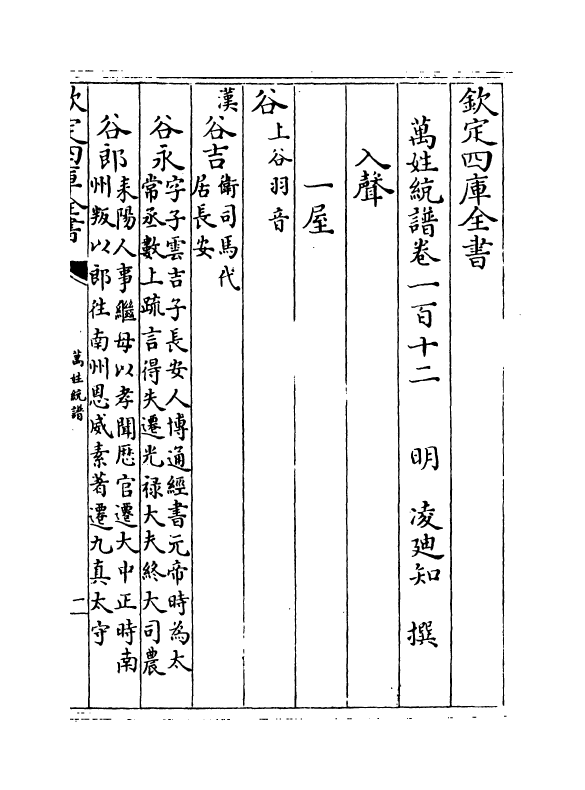 欽定四庫全書
萬姓統譜卷一百十二
明 凌廸知 撰
入聲
一屋
谷 上谷羽音
漢 谷吉 衛司馬代
居長安
谷永 字子雲吉子長安人博通經書元帝時為太
常丞數上疏言得失遷光禄大夫終大司農
谷郎 耒陽人事繼母以孝聞歷官遷大中正時南
州叛以郎徃南州恩威素著遷九真太守
欽定四庫全書
萬姓統譜
一